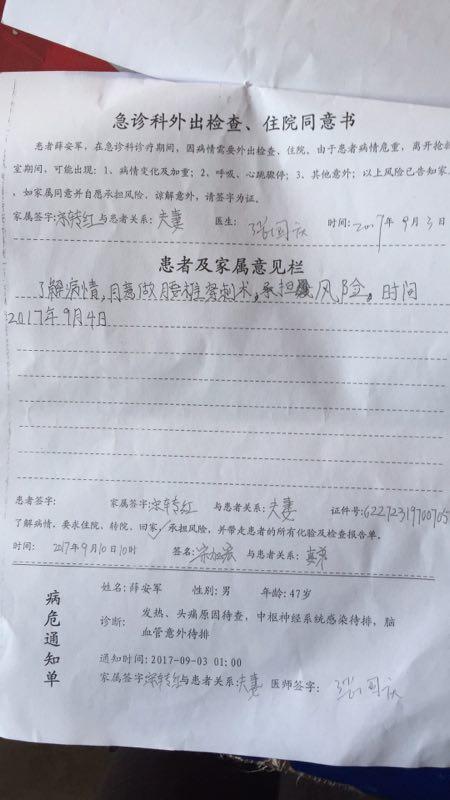 急诊科外出检查、住院同意书
患者薛安军，在急诊科诊疗期间，因病情需要外出检查、住院，由于患者病情危重，离开抢救
室期间，可能出现：1、病情变化及加重；2、呼吸、心跳骤停；3、其他意外；以上风险已告知家
，如家属同意并自愿承担风险，谅解意外，请签字为证。
家属签字:宋转红 与患者关系:夫妻 医生: 张国庆 时间:2017年9月3日
患者及家属意见栏
了解病情，同意做腰椎穿刺术，承担风险。时间
2017年9月4日
患者签字: 家属签字:宋转红 与患者关系:夫妻 证件号:62272319700705
了解病情，要求住院、转院、回家，承担风险，并带走患者的所有化验及检查报告单。
时间: 2017年9月10日10时 签名: 与患者关系:
病危通知单
姓名:薛安军 性别:男 年龄:47岁
诊断: 发热、头痛原因待查，中枢神经系统感染待排，脑
血管意外待排
通知时间:2017-09-03 01:00
家属签字:宋转红 与患者关系:夫妻 医师签字: 张国庆